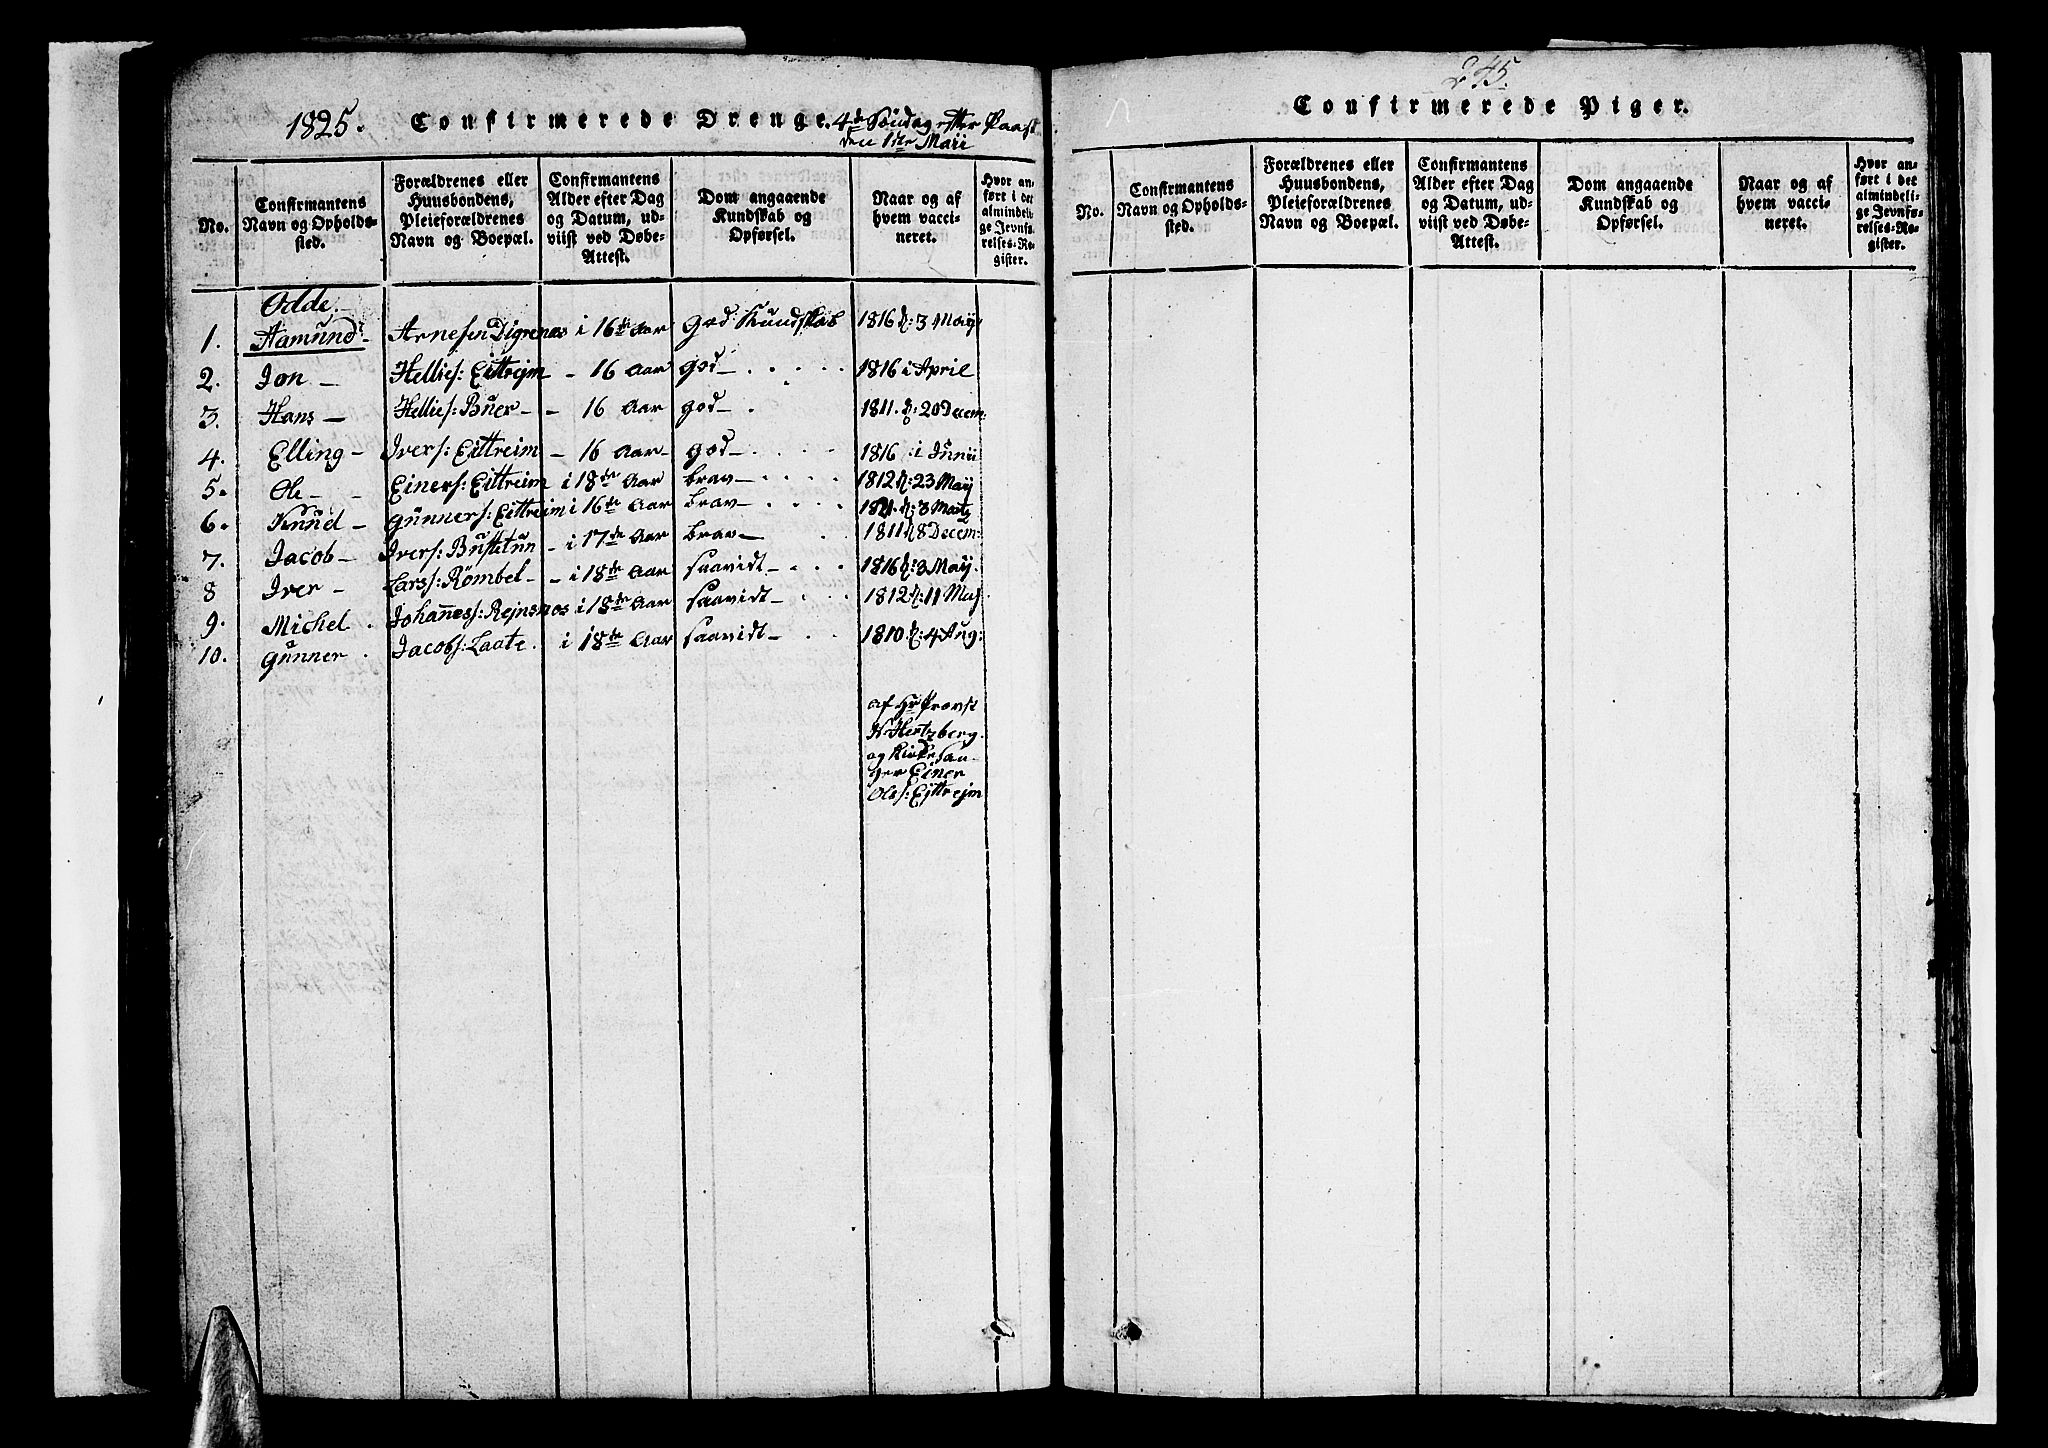 1825. Confirmerede Drenge. 4de Söndag efter Paask
den 1ste Maii
No.
Confirmantens
Navn og Opholds-
sted.
Forældrenes eller
Huusbondens,
Pleieforældrenes
Navn og Boepæl.
Confirmantens
Alder efter Dag
og Datum, ud-
viist ved Døbe-
Attest.
Dom angaaende
Kundskab og
Opførsel.
Naar og af
hvem vacci-
neret.
Hvor an-
ført i det
almindeli-
ge Jevnfø-
relses-Re-
gister.
Odde.
1. Aamund - Arnesen Digrenæs i 16de Aar God Kundskab 1816 d: 3 Maij
2. Jon - Hellies: Eittrejm - 16 Aar god - . . . . 1816 i April
3. Hans - Hellies: Buer - - 16 Aar god - . 1811. d: 20 Decem:
4. Elling - Ivers: Eittreim - 16 Aar - god - . . . . 1816 : i Junii
5. Ole - - Einers: Eittreim i 18de Aar brav - . . . . 1812 d: 23 Maij
6. Knud - Gunners: Eittreim i 16de Aar brav - . . . . d: 3 Martz
7. Jacob - Ivers: Bustetun - i 17de Aar brav - . 1811 d 8 Decem:
8 Iver - Larss: Römbel - - i 18de Aar saavidt - . . . 1816 d: 3 Maij.
9. Michel . Johannes: Rejnsnos i 18de Aar saavidt - . . . 1812 d: 11 Maj
10. Gunner . Jacobs: Laate. i 18de Aar saavidt - . . 1810. d: 4 Aug:
af Hr Provst
N Hertzberg.
og Kirkesan-
ger Einer
Ols: Ejttrejm
245.
Confirmerede Piger.
No.
Confirmantens
Navn og Opholds-
sted.
Forældrenes eller
Huusbondens,
Pleieforældrenes
Navn og Boepæl.
Confirmantens
Alder efter Dag
og Datum, ud-
viist ved Døbe-
Attest.
Dom angaaende
Kundskab og
Opførsel.
Naar og af
hvem vacci-
neret.
Hvor an-
ført i det
almindeli-
ge Jevnfø-
relses-Re-
gister.